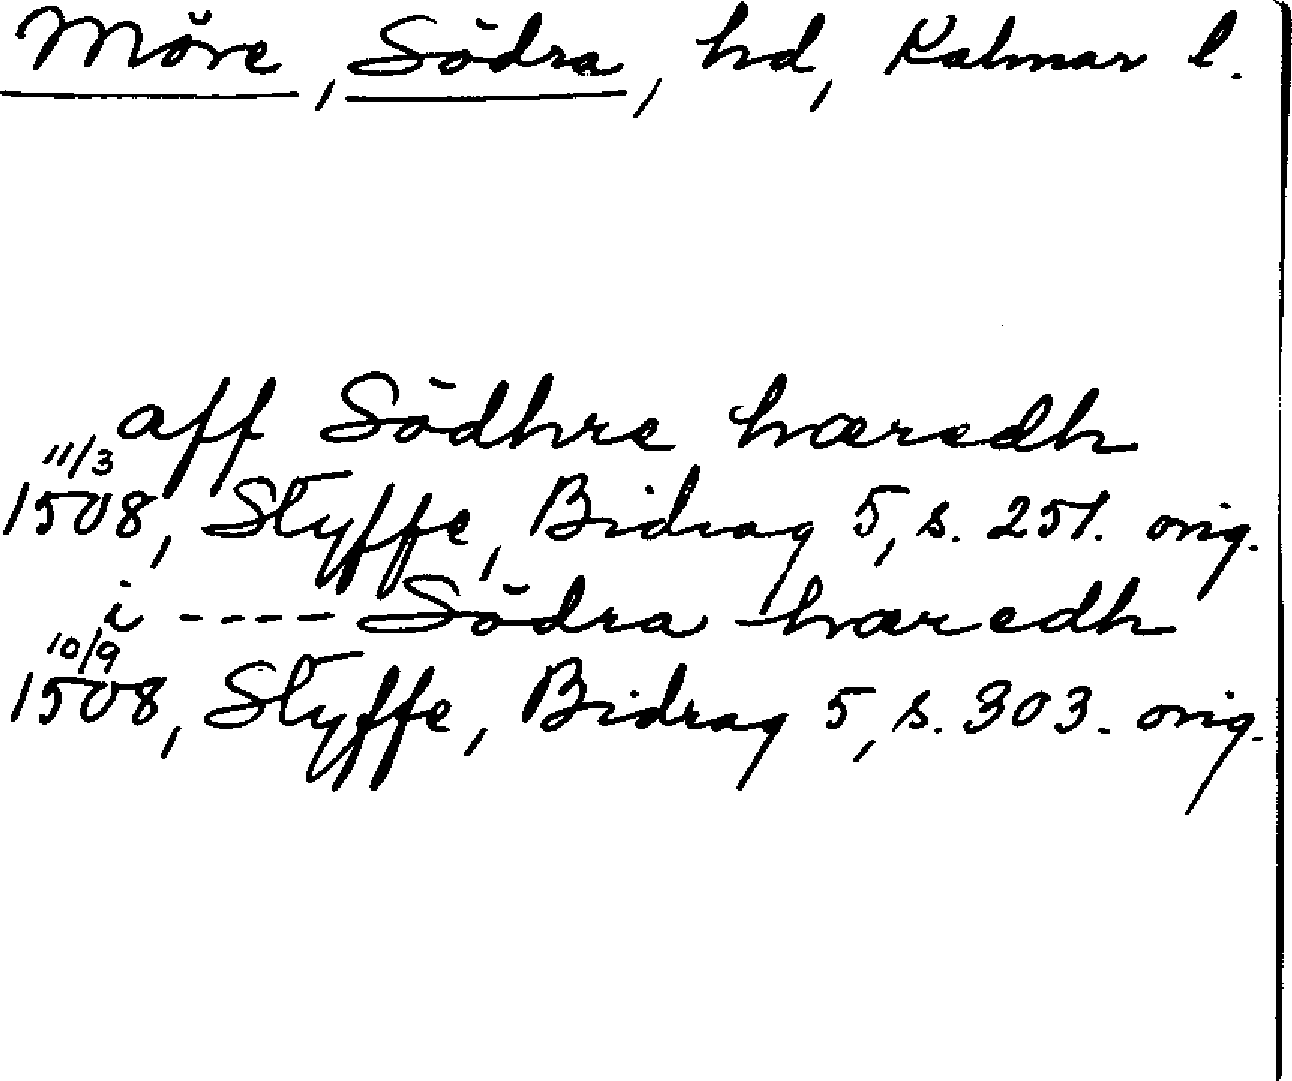 Möre, Södra, hd, Kalmar l.
aff Södhre hæredh
11/3
1508, Styffe, Bidrag 5, s. 251. orig.
i ---- Södra hæredh
10/9
1508, Styffe, Bidrag 5, s. 303. orig.